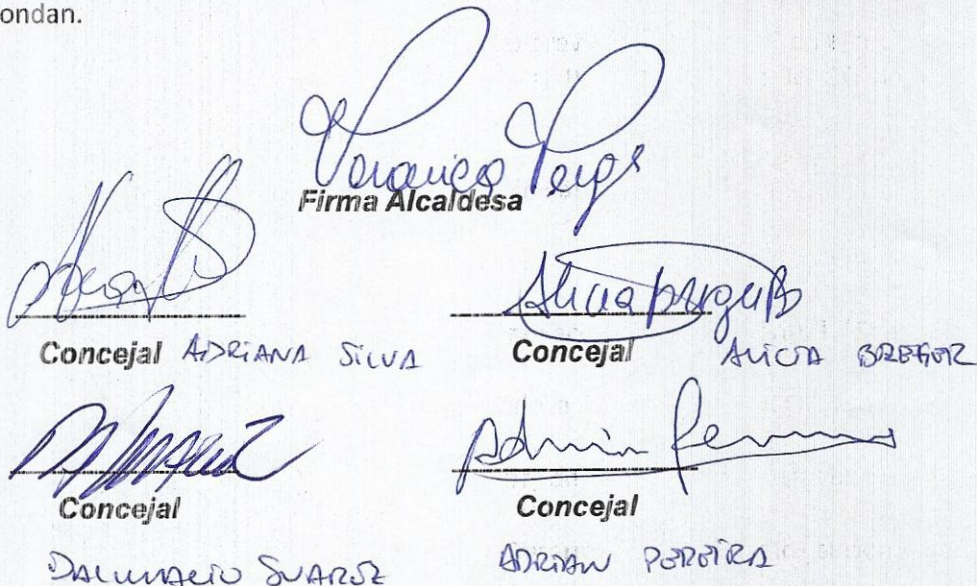 ondan.
Veronica
Firma Alcaldesa
Concejal ADRIANA SILVA
Alicia
Concejal ALICIA BREGER
Concejal
DALMACIO SUAREZ
Adrian Pereira
Concejal
ADRIAN PEREIRA